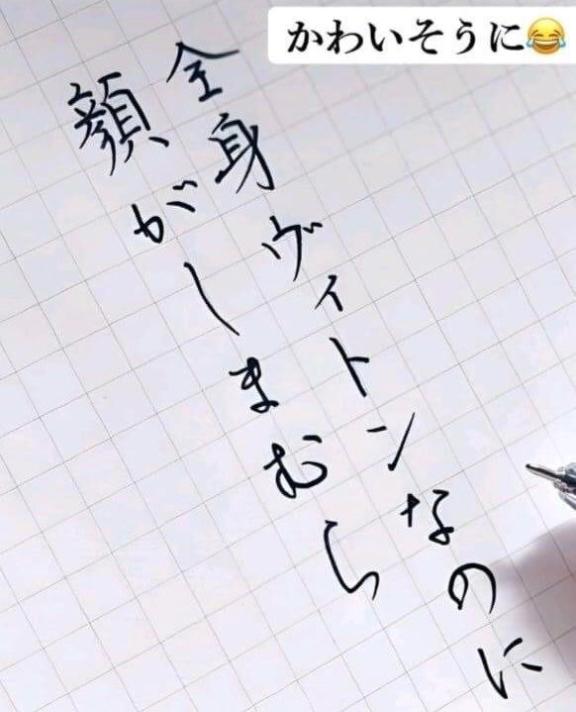 かわいそうに😂
全身ヴィトンなのに
顔がしまむら